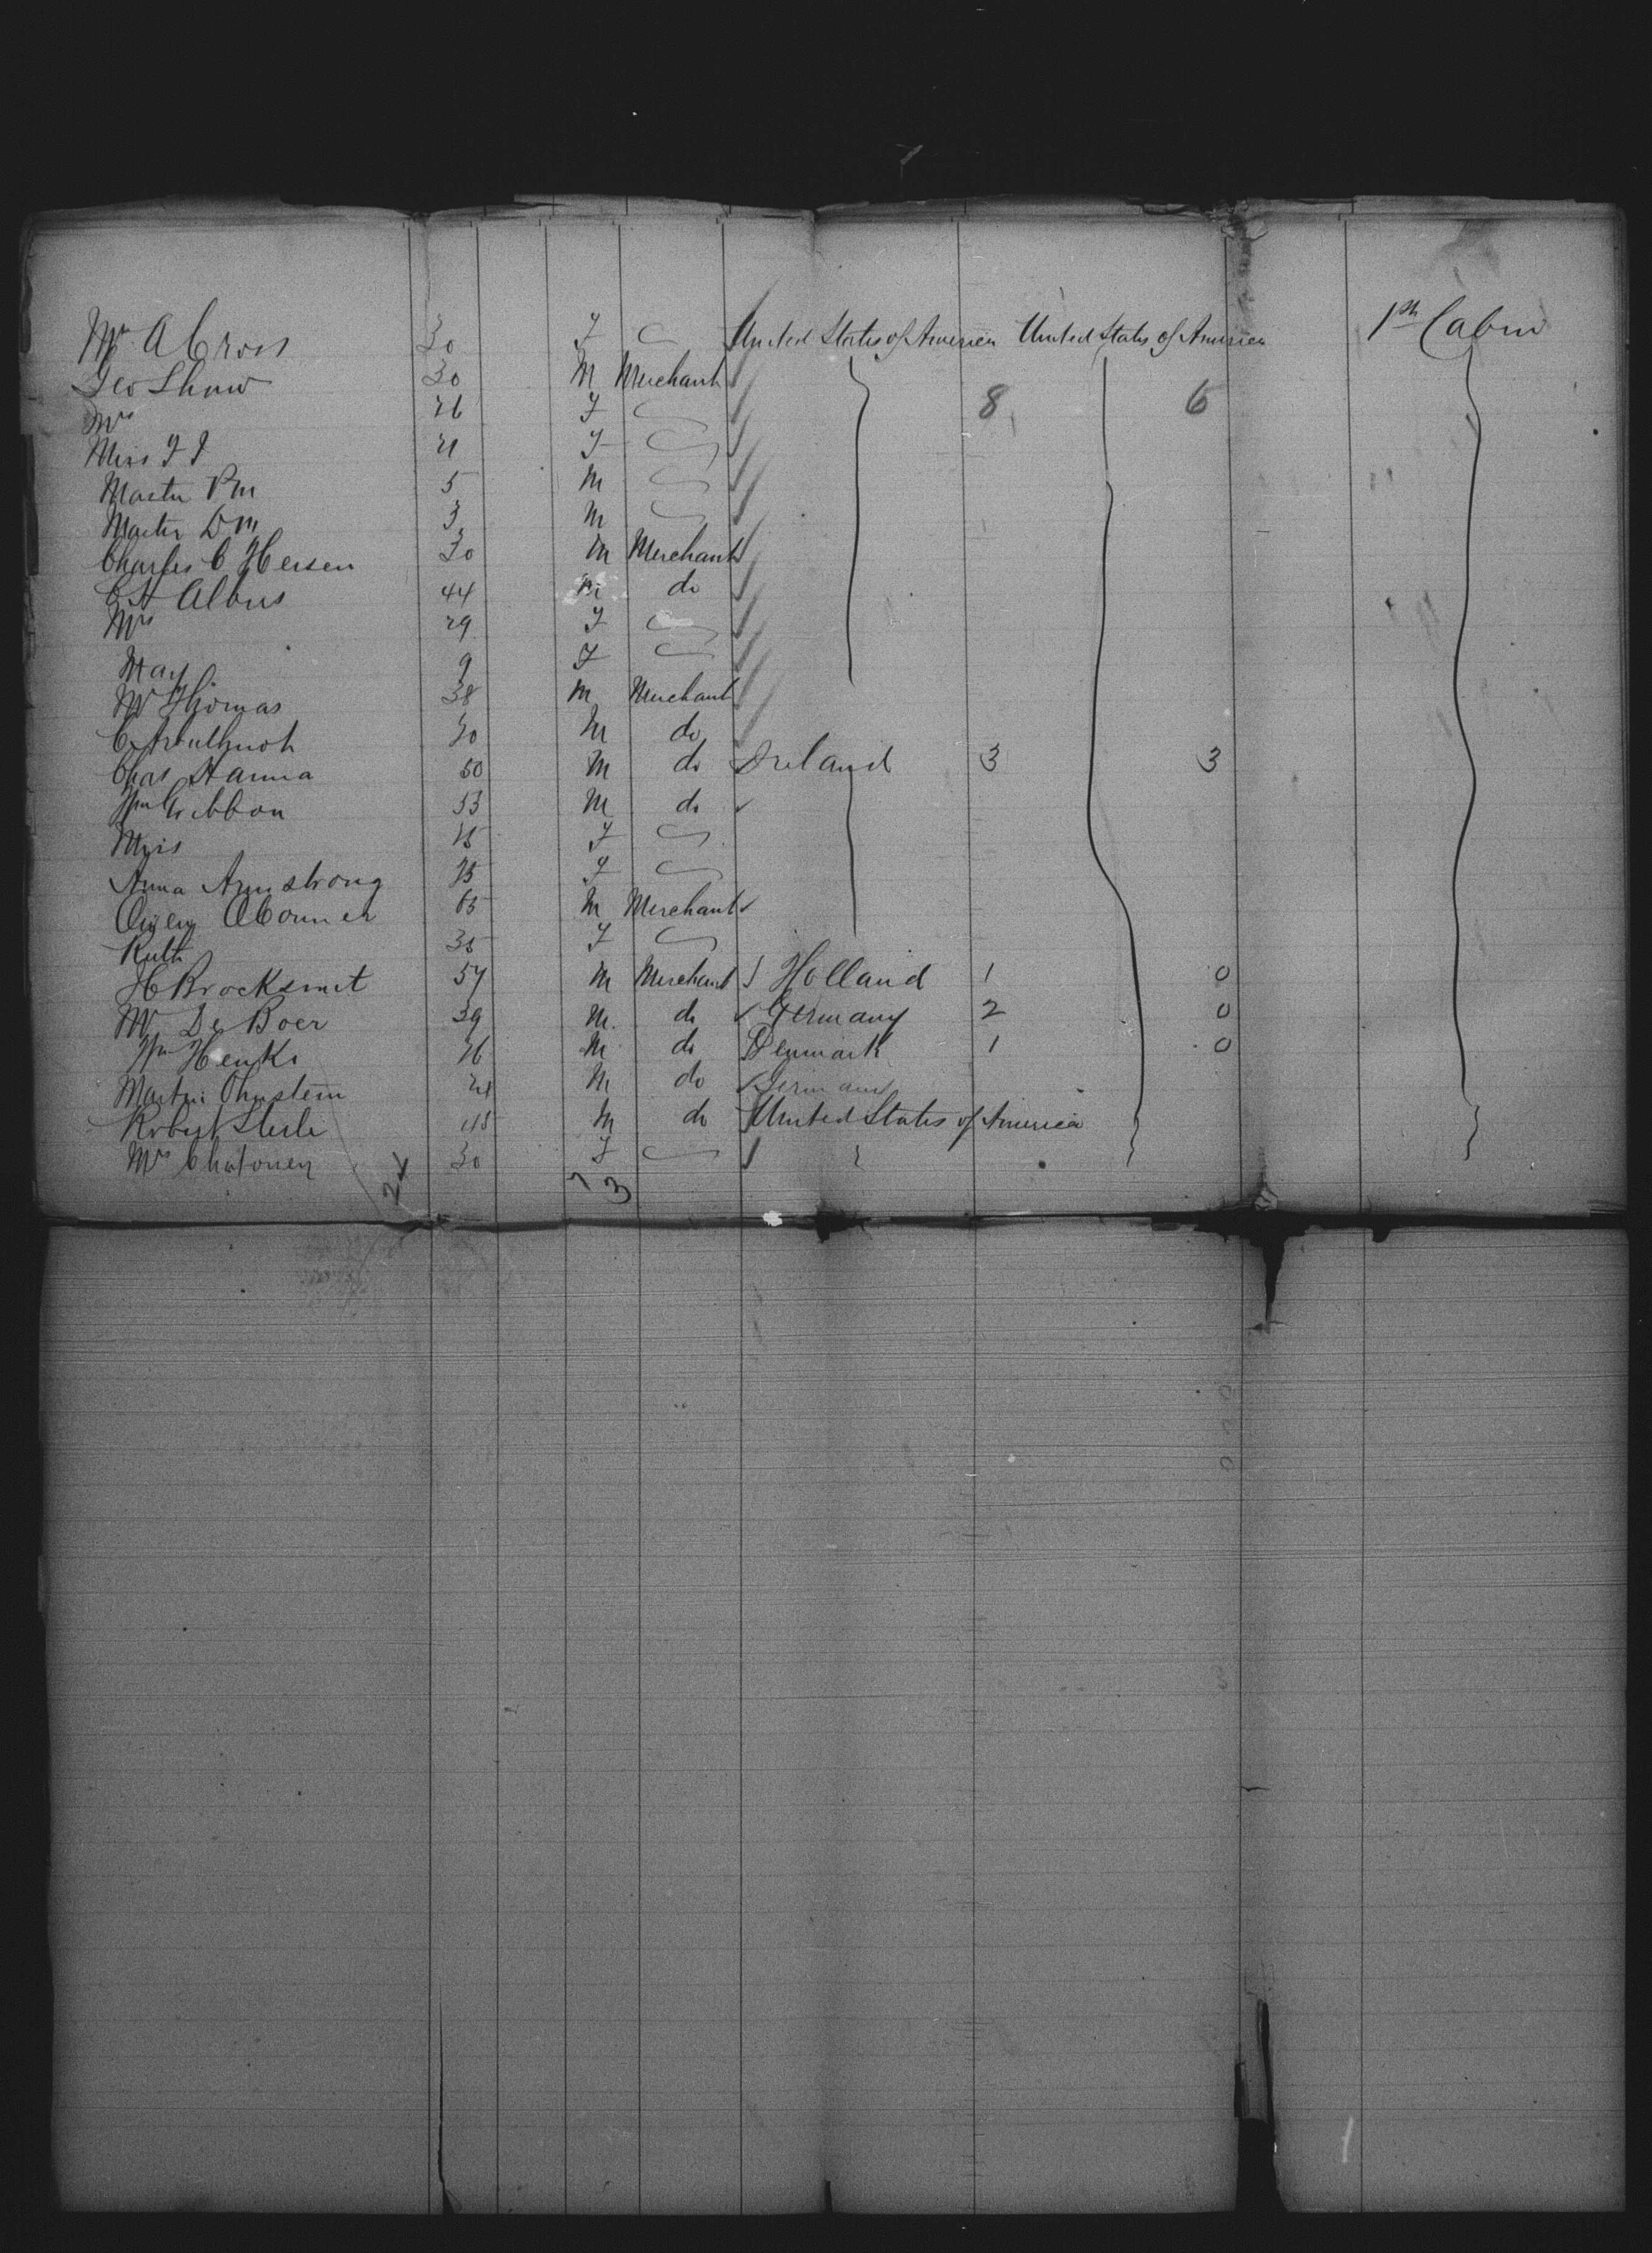 Mrs A Cross 30 F United States of America United States of America 1st Cabin
Geo Shaw 30 M Merchant
Mrs 26 F 8 6
Miss F F 21 F
Master P M 5 M
Master D M 3 M
Charles C Hersen 30 M Merchant
C H Albus 44 M do
Mrs 29 F
May 9 F
Mr Thomas 38 M Merchant
C Arbuthnot 30 M do
Chas Hanna 50 M do Ireland 3 3
Wm Gibbon 53 M do
Miss 15 F
Anna Armstrong F
Owen OConner 65 M Merchant
Ruth 35 F
H Brocksmit 57 M Merchant Holland 1 0
W De Boer 39 M do Germany 2 0
Wm Henki 26 M do Denmark 1 0
Martin Ohnstein 21 M do Germany
Robert Steele 45 M do United States of America
Mrs 30 F
24